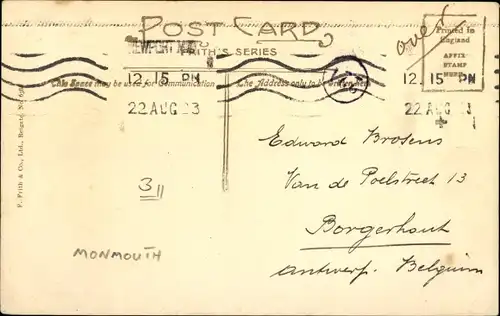 POST CARD
FRITH'S SERIES
over
Printed in
England
AFFIX
STAMP
HERE
NEWPORT MON
12.15 PM
22 AUG 23
12.15 PM
22 AUG 23
This Space may be used for Communication
The Address only to be written here
F. Frith & Co., Ltd., Reigate.
3
MONMOUTH
Edward Brosens
Van de Poelstreet 13
Borgerhout
Antwerp. Belguim